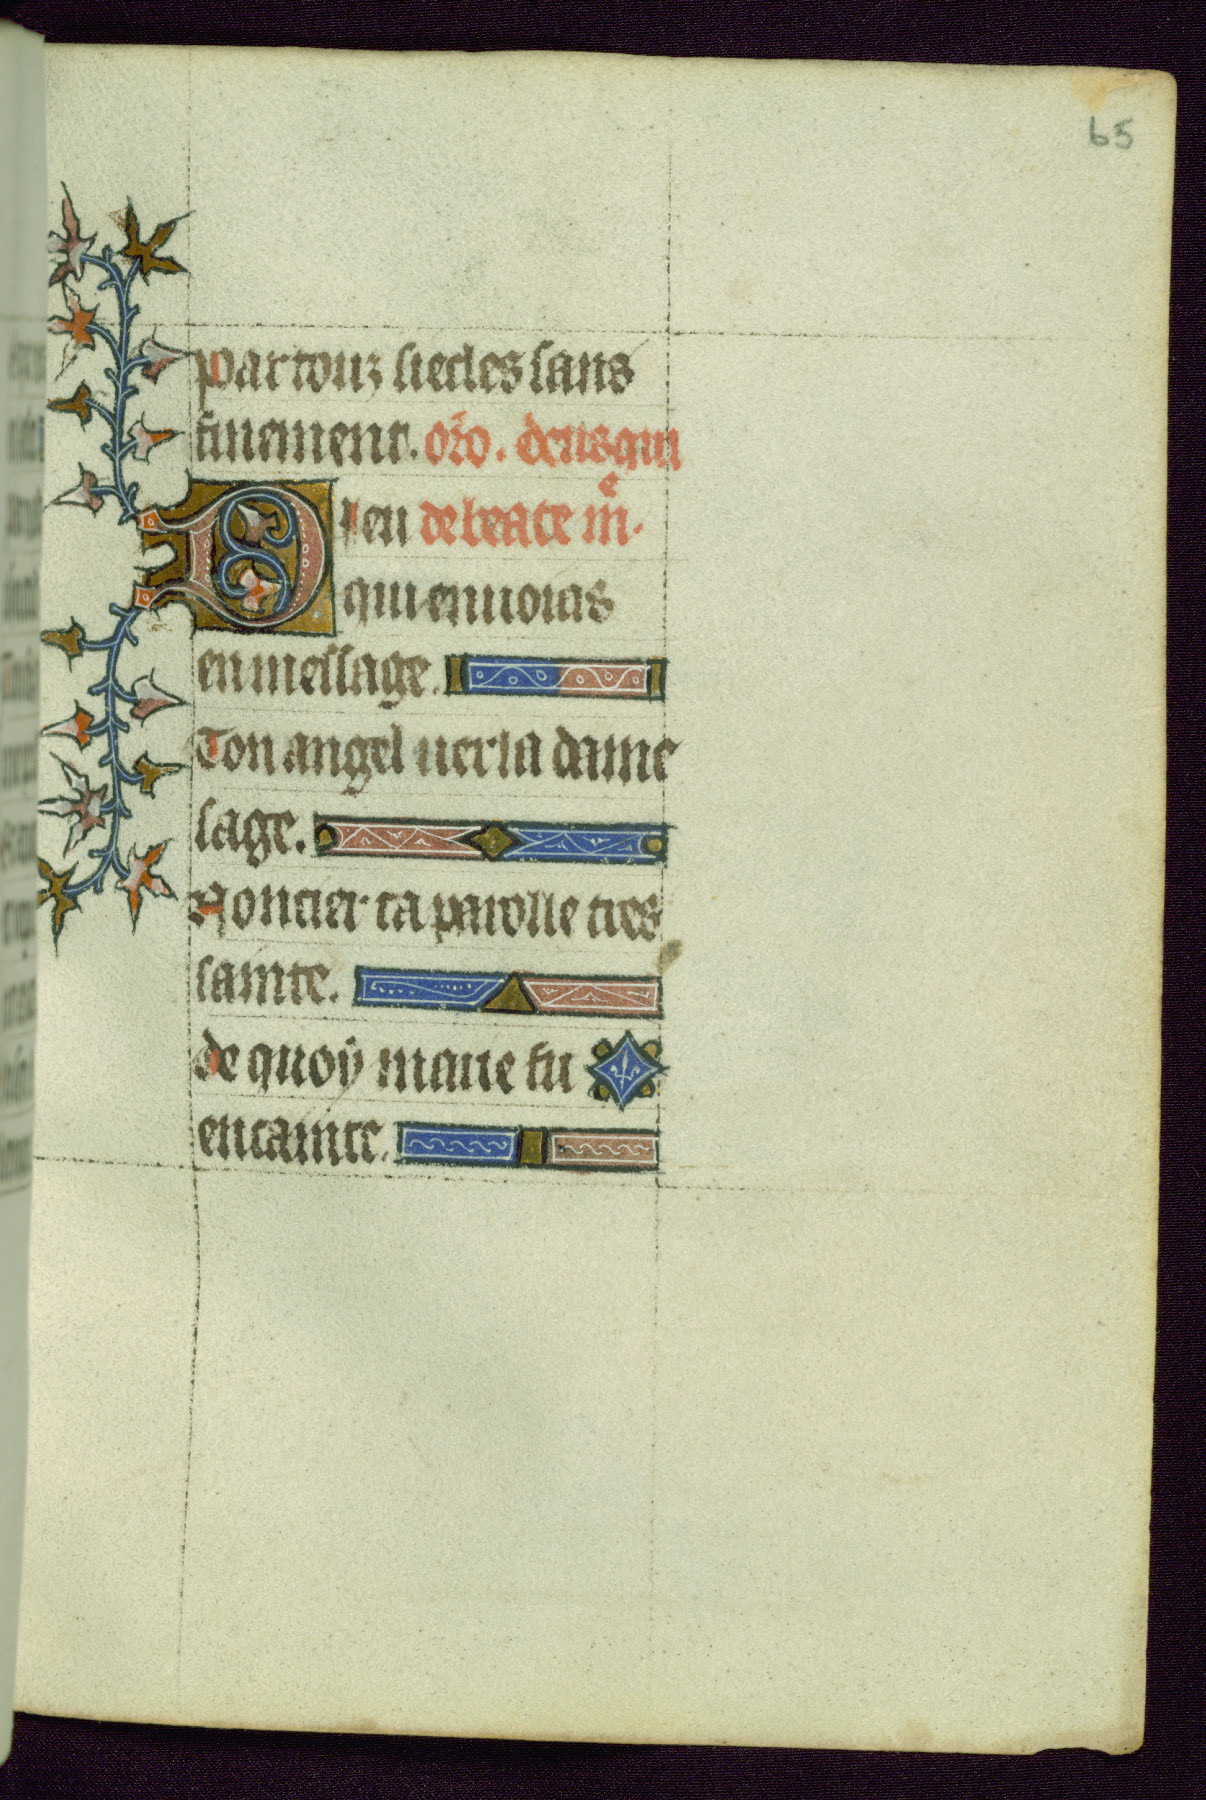 65
Par touz siecles sans
finement. oro. deus qui
Dieu de beate me.
qui enuoias
en message.
Ton angel uer la dame
sage.
Noncier ta parolle tres
sainte.
de quoy marie fu
encainte.